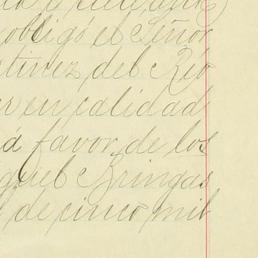 obligó el Señor
tinez del Rio
en calidad
a favor de los
guel Bringas
de cinco mil